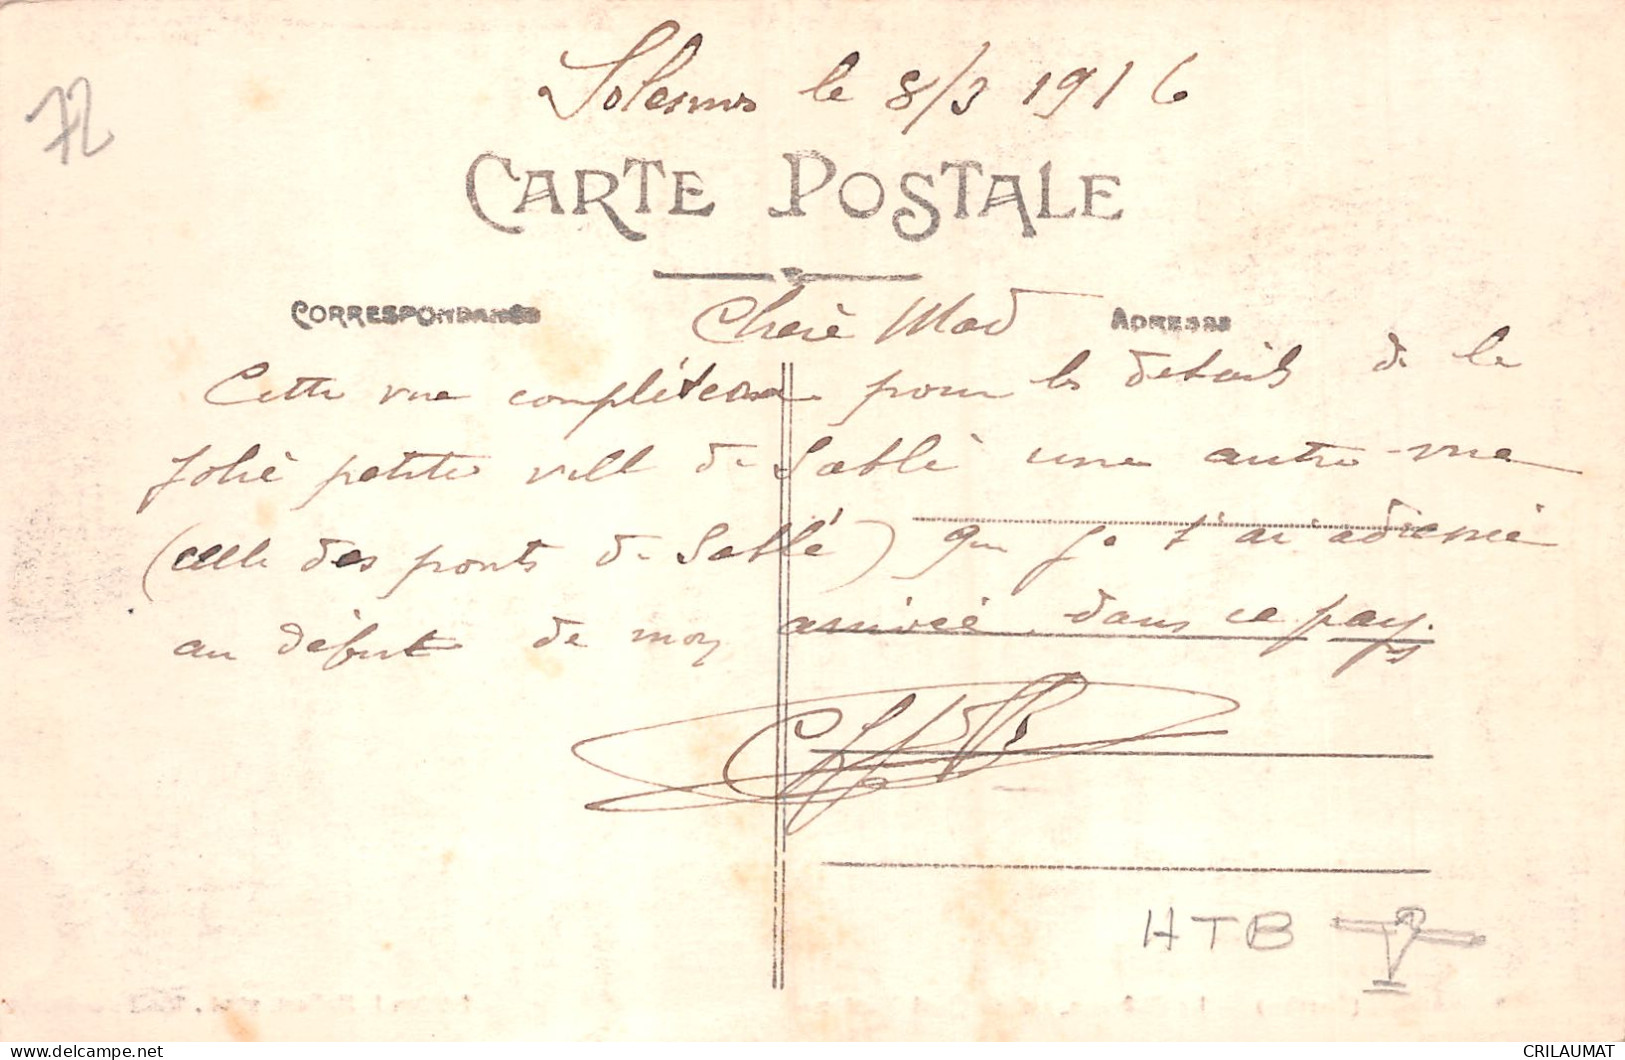 72
Solesmes le 8/3 1916
CARTE POSTALE
CORRESPONDANCE
ADRESSE
Chère Mad
Cette vue complétera pour les details de la
jolie petite ville de Sablé une autre vue
(celle des ponts de Sablé) que je t'ai adressée
au début de mon arrivée dans ce pays.
HTB
delcampe.net
CRILAUMAT